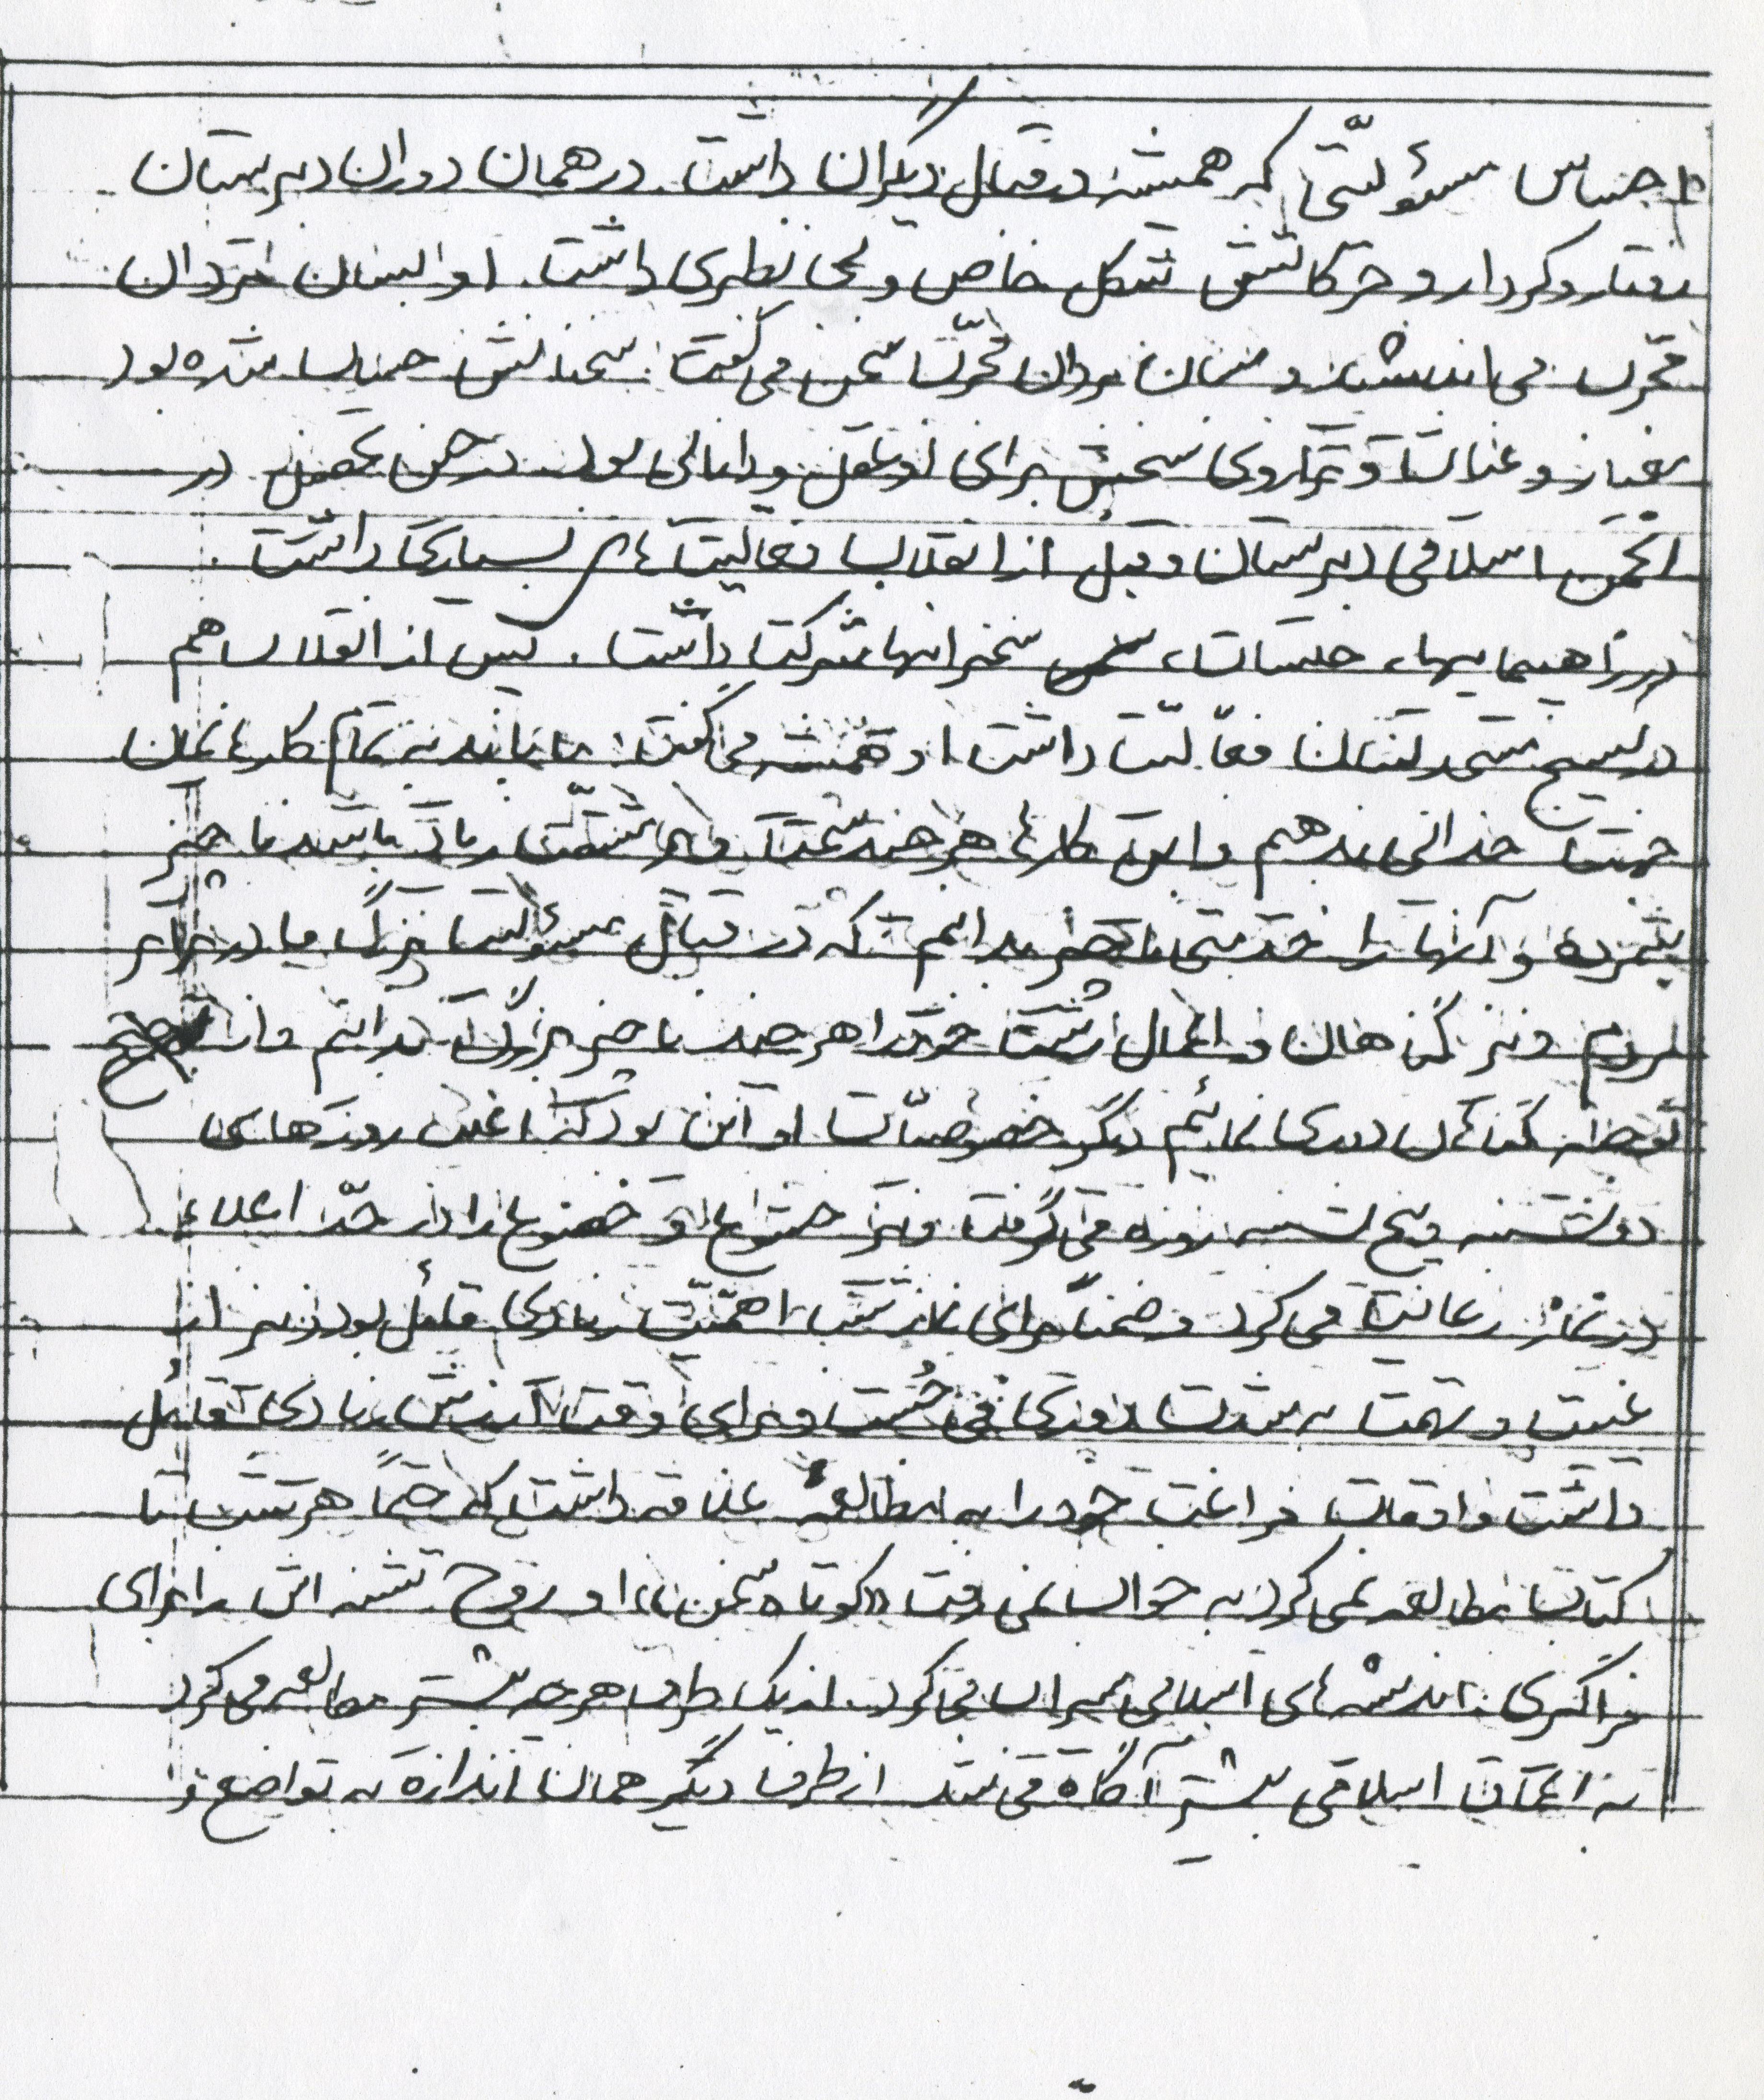 احساس مسئولیتی که همیشه در قبال دیگران داشت. در همان دوران دبیرستان
رفتار و کردار و حرکاتش شکل خاص و بی نظیری داشت. او بسان مردان
مجرّب می اندیشید و بسان مردان مجرّب سخن می گفت. سخنانش حساب شده بود
و تندروی سخنش برای او عقل و دانائی بود. در ضمن تحصیل در
انجمن اسلامی دبیرستان و قبل از انقلاب فعالیت های بسیاری داشت.
در راهپیمایی‌ها، جلسات، سخنرانیها شرکت داشت. پس از انقلاب هم
در بسیج فعّالیّت داشت او همیشه می گفت: ما باید به تمام کارهایمان
جهت خدائی بدهیم و این کارها هر چند سخت و پر مشقّت زیاد باشد ناچیز
شمرده و آنها را خدمتی ناچیز بدانیم که در قبال مسئولیت بزرگ ما در برابر
مردم و نیز گناهان و اعمال زشت خود را هر چند ناچیز بزرگ بدانیم و از
دوری نمائیم دیگر خصوصیّات او این بود که اغلب روزهای
دوشنبه و پنج شنبه روزه می گرفت و نیز خشوع و خضوع را در حدّ اعلاء
در نماز رعایت می کرد و ضمناً برای نماز شب اهمّیّت زیادی قائل بود و نیز از
غیبت و تهمت به شدت دوری می جُست و برای وقت ارزش زیادی قائل
داشت و اوقات فراغت خود را به مطالعه علاقه داشت که حتماً هر شب تا
کتاب مطالعه نمی کرد به خواب نمی رفت «کوتاه سخن» او روح تشنه اش را برای
فراگیری اندیشه های اسلامی سیراب می کرد. از یک طرف هر چه بیشتر مطالعه می کرد
به اعماق اسلامی بیشتر آگاه می شد از طرف دیگر همان اندازه به تواضع و